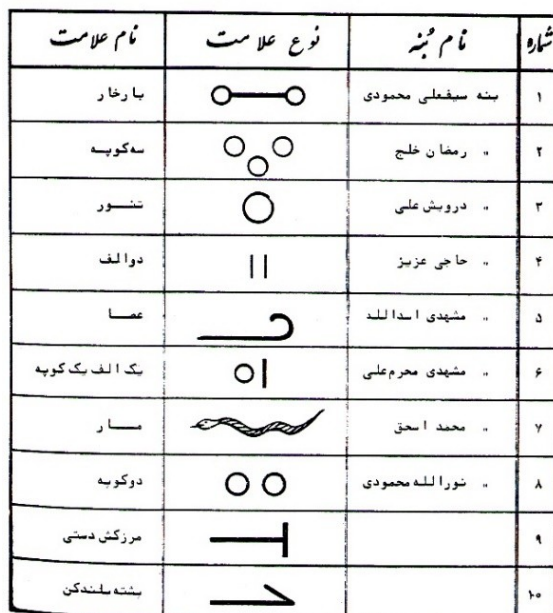 شماره نام بُنه نوع علامت نام علامت
۱ بنه سیفعلی محمودی بارخار
۲ " رمضان خلج سه کوپه
۳ " درویش علی تنـور
۴ " حاجی عزیز دوالف
۵ " مشهدی اسدالله عصـا
۶ " مشهدی محرم علی یک الف یک کوپه
۷ " محمد اسحق مـار
۸ " نورالله محمودی دوکوپه
۹ مرزکش دستی
۱۰ پشته بلندکن